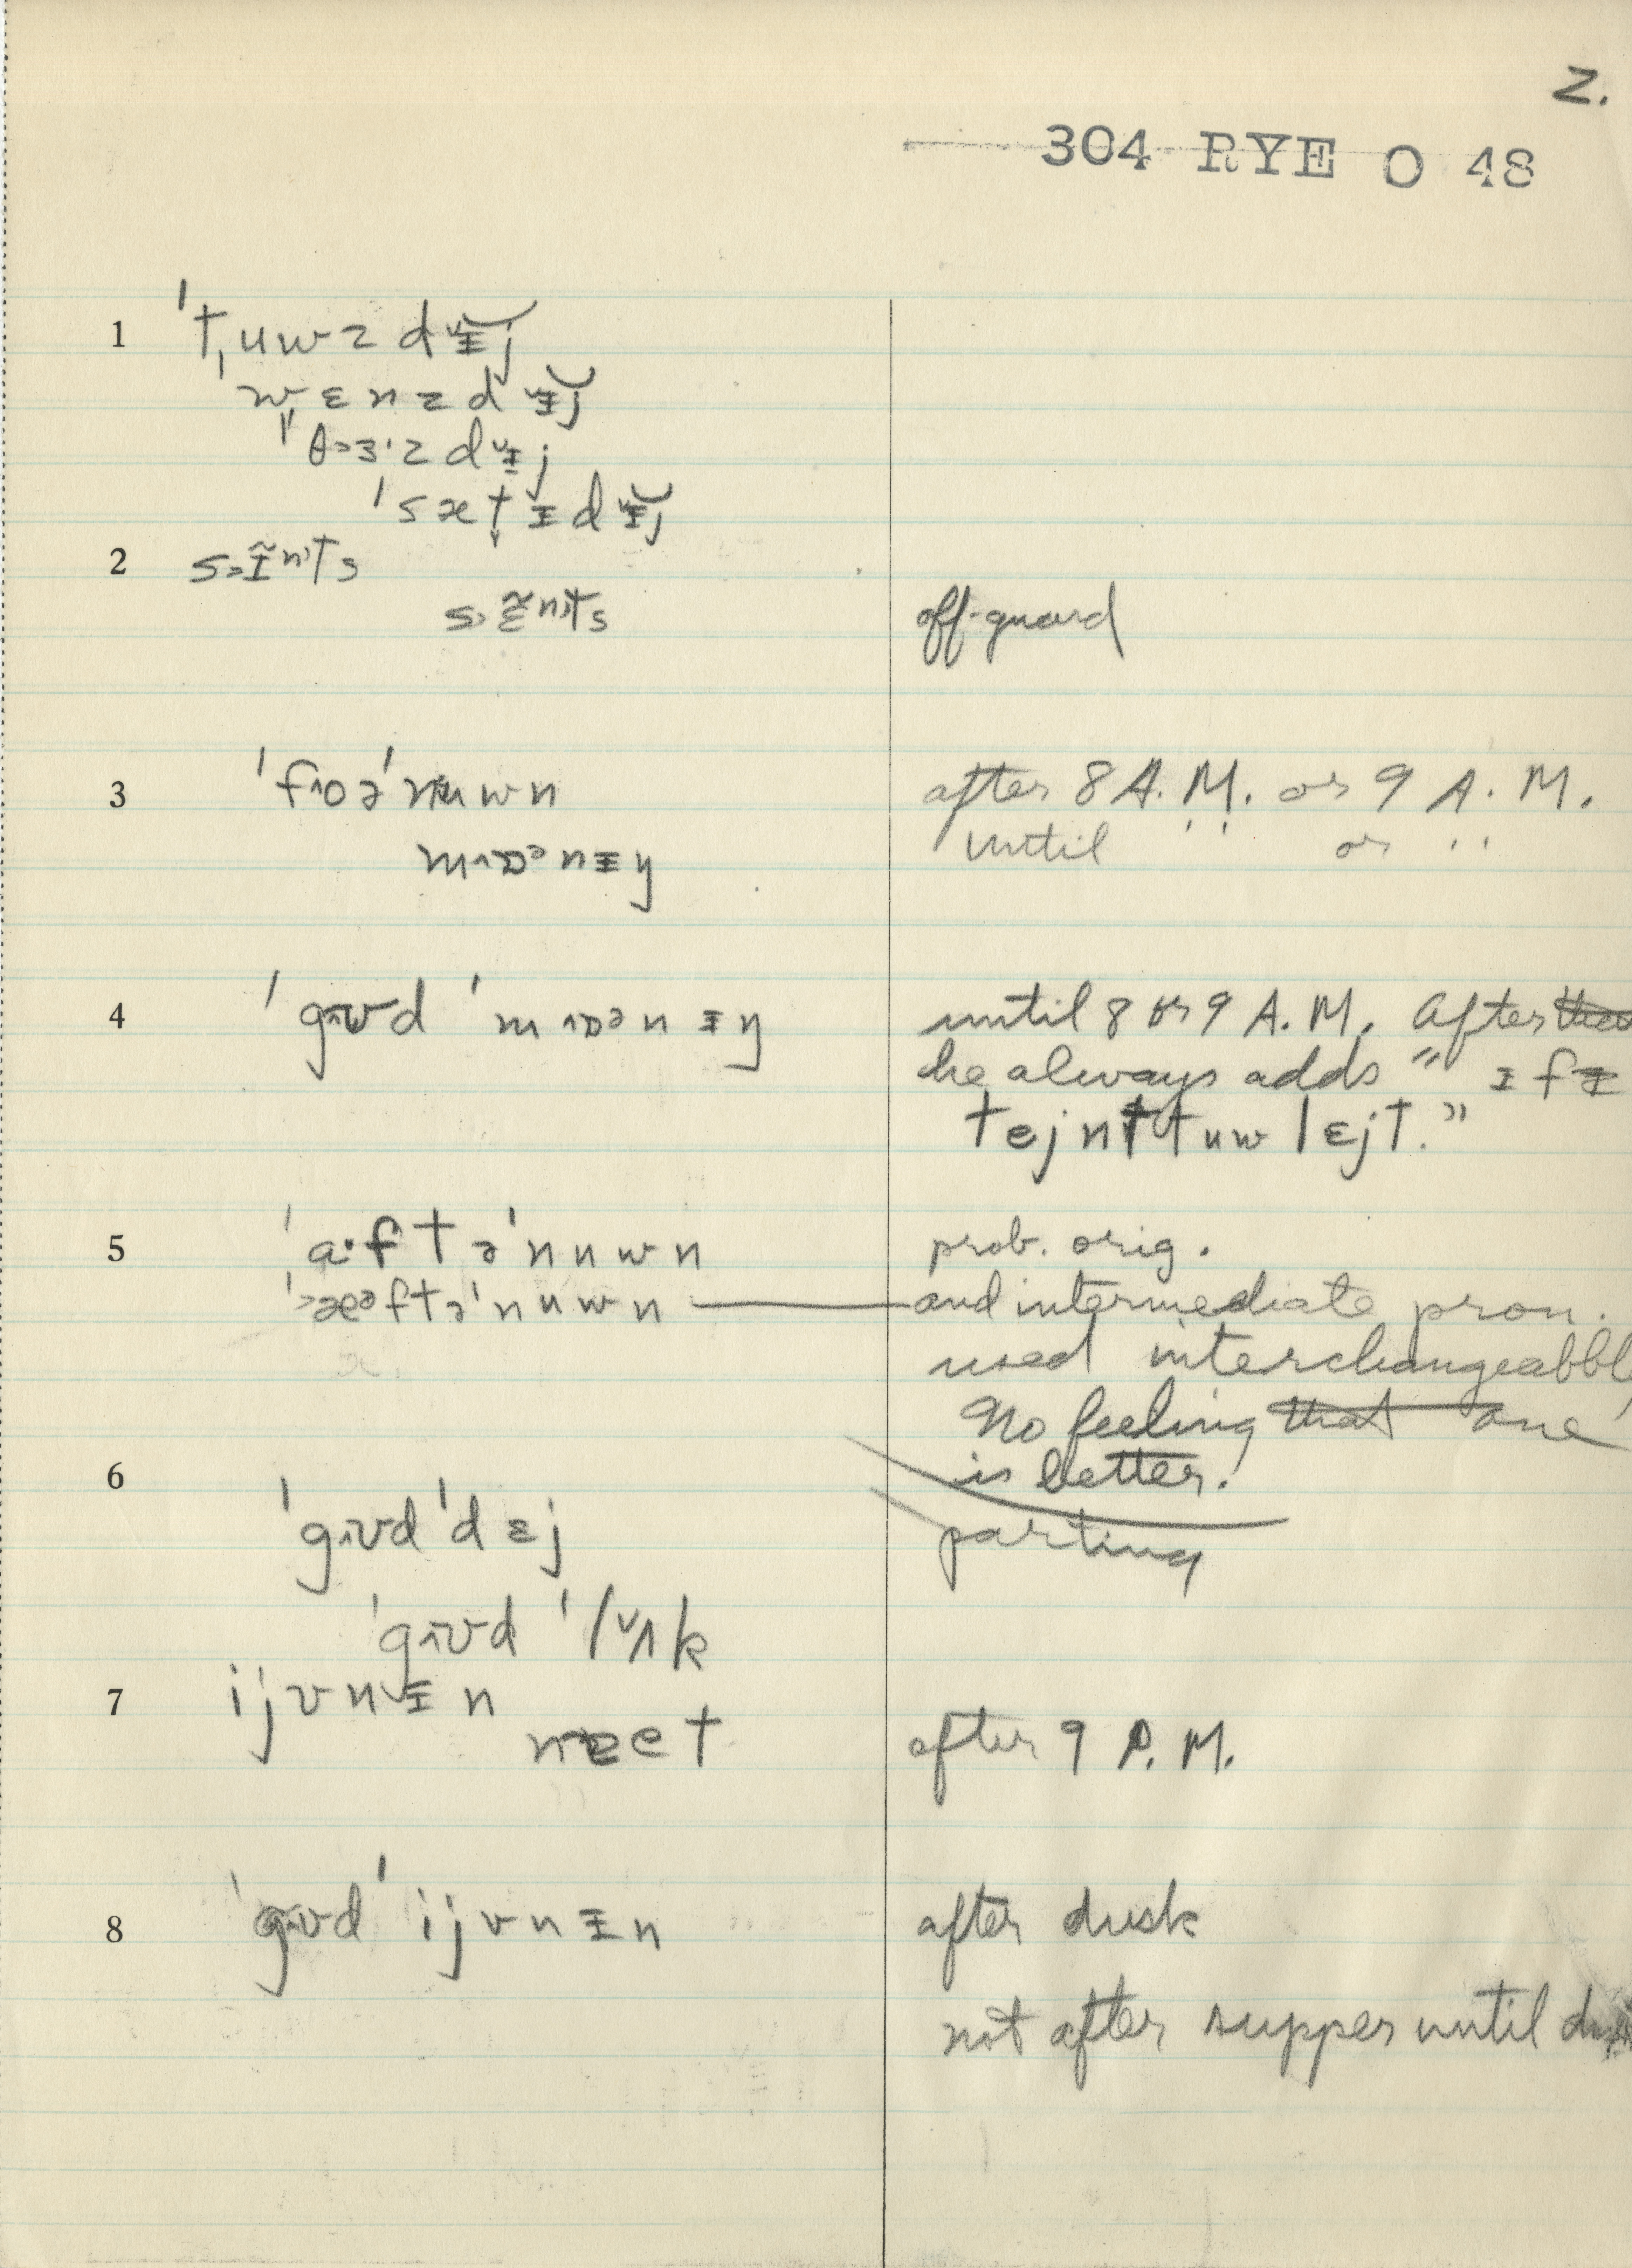 2.
304 RYE O 48
1 ˈt̩uwzdᵻj
ˈwɛnzdᵻj
ˈθɜ·zdᵻj
ˈsætᵻdᵻj
2 s˃ɪ̃ⁿts
s˃ɛ̃ⁿts off-guard
3 ˈfɔəˈnuwn after 8 A.M. or 9 A.M.
mɒənᵻŋ until ' ' or ' '
4 ˈgʊd ˈmɒənᵻŋ until 8 or 9 A.M. After
he always adds " ᵻfᵻ
tejnt tuw lɛjt."
5 ˈa·ftəˈnuwn prob. orig.
ˈæəftəˈnuwn and intermediate pron.
used interchangeabbl
No feeling that one
is better.
6 ˈgʊd ˈdɛj parting
ˈgʊd ˈlʌk
7 ijvnᵻn
after 9 P.M.
8 ˈgʊd ˈijvnᵻn after dusk
not after supper until